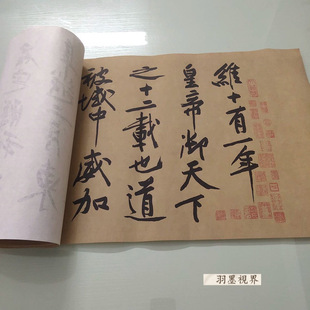 維十有一年
皇帝御天下
之十二載也道
被域中威加
羽墨視界